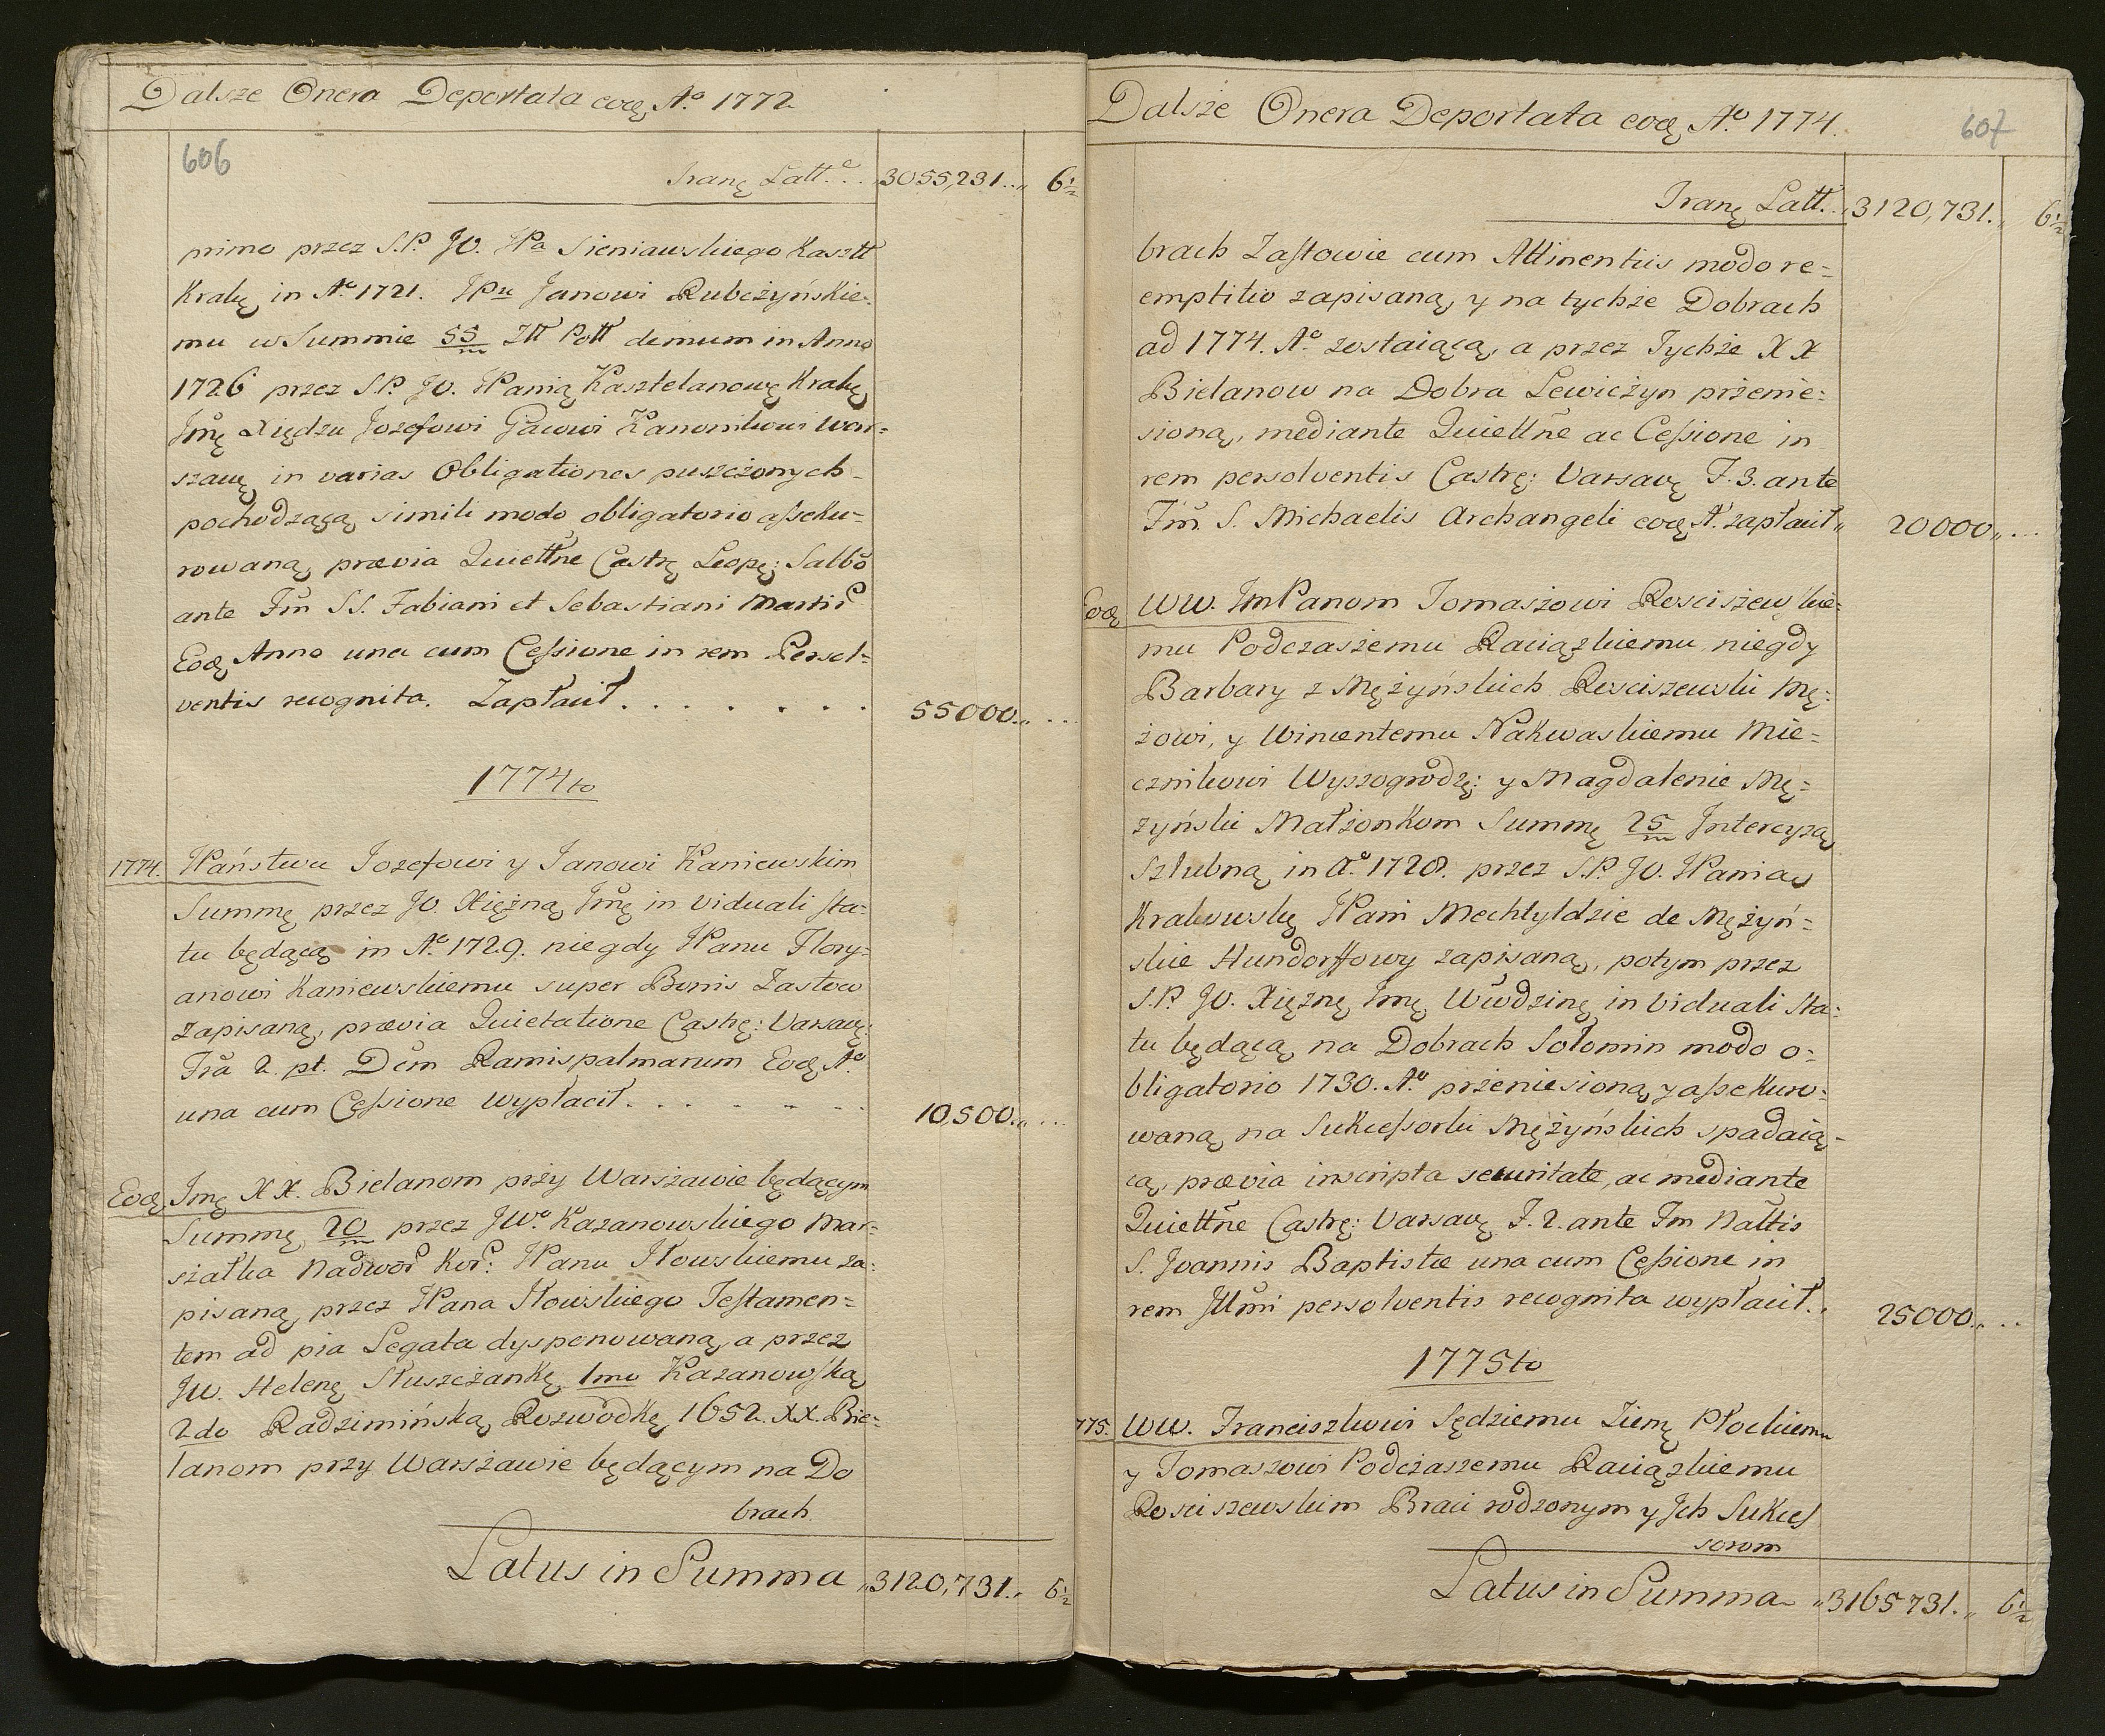 Dalsze Onera Deportata eoq A.o 1772
606
Tranę Latt.e . . 3055,231 . . „ 6½
primo przez S.P. JO. JPa Sieniawskiego Kasztt
Krakę in A.o 1721. JPu Janowi Rubczyńskie=
mu w Summie 55/m Ztt Pott demum in Anno
1726 przez S.P. JO. JPanią Kasztelanowę Krakę
Jmę Xiędzu Jozefowi Kanonikowi War=
szawę in varias Obligationes puszczonych
pochodzącą simili modo obligatorio asseku=
rowaną, prævia Quiettne Castrę Leopę: Sabbo
ante Fm SS. Fabiani et Sebastiani Martir
Eoq Anno una cum Cessione in rem Persol=
ventis recognita. Zapłacił . . . . . . . 55000. „ . . .
1774to
1774. JPaństwu Jozefowi y Janowi Kaniewskim
Summę przez JO. Xiężną Jmę in viduali sta=
tu będącą in A.o 1729. niegdy JPanu Flory=
anowi Kaniewskiemu super Bonis Zastow
zapisaną, prævia Quietatione Castrę: Varsavę:
Fra 2. pt. Dcm Ramispalmarum Eoq A.o
una cum Cessione wypłacił . . . . . . . 10,500. „ . . .
Eoq Jmę XX. Bielanom przy Warszawie będącym
Summę 20/m przez JW.o Kazanowskiego Mar=
szałka Nadwor Kor: JPanu Iłowskiemu za=
pisaną, przez JPana Iłowskiego Testamen=
tem ad pia Legata dysponowaną, a przez
JW. Helenę Słuszczankę 1mo Kazanowską
2do Radzimińską Rozwodkę 1652. XX. Bie=
lanom przy Warszawie będącym na Do
brach
Latus in Summa „3120,731. „ 6½
Dalsze Onera Deportata eoq A.o 1774.
607
Tranę Latt. . „3120,731. „ 6½
brach Zastowie cum Attinentiis modo re=
emptitio zapisaną, y na tychże Dobrach
ad 1774. A.o zostaiącą, a przez Tychże XX
Bielanow na Dobra Lewiczyn przenie=
sioną, mediante Quiettne ac Cessione in
rem persolventis Castrę: Varsavę F. 3. ante
Fm. S. Michaelis Archangeli eoq A. zapłacił „ 20000 „ . . .
Eoq WW. JmPanom Tomaszowi Rosciszewskie=
mu Podczaszemu Raciązkiemu niegdy
Barbary z Mężyńskich Rosciszewski Mę=
żowi, y Wincentemu Nakwaskiemu Mie=
cznikowi Wyszogrodzę: y Magdalenie Mę=
żyński Małżonkom Summę 25/m Intercyzą
Szlubną in A.o 1728. przez S.P. JO. JPanią
Krakowskę JPani Mechtyldzie de Mężyń=
skie Hundorffowy zapisaną, potym przez
S.P. JO. Xiężnę Jmę Wwdzinę in viduali sta=
tu będącą na Dobrach Sołomin modo o=
bligatorio 1730. A.o przeniesioną, y assekuro=
waną, na Sukcessorki Mężyńskich spadaią=
cą, prævia inscripta securitate, ac mediante
Quiettne Castrę: Varsavę F. 2. ante Fm Nattis
S. Joannis Baptistæ una cum Cessione in
rem Jllmi persolventis recognita wypłacił. „ 25000. „ . .
1775to
775. WW. Franciszkowi Sędziemu Ziemę Płockiemu
y Tomaszowi Podczaszemu Raciązkiemu
Rosciszewskim Braci rodzonym y Jch Sukces
sorom
Latus in Summa „3165731. „ 6½